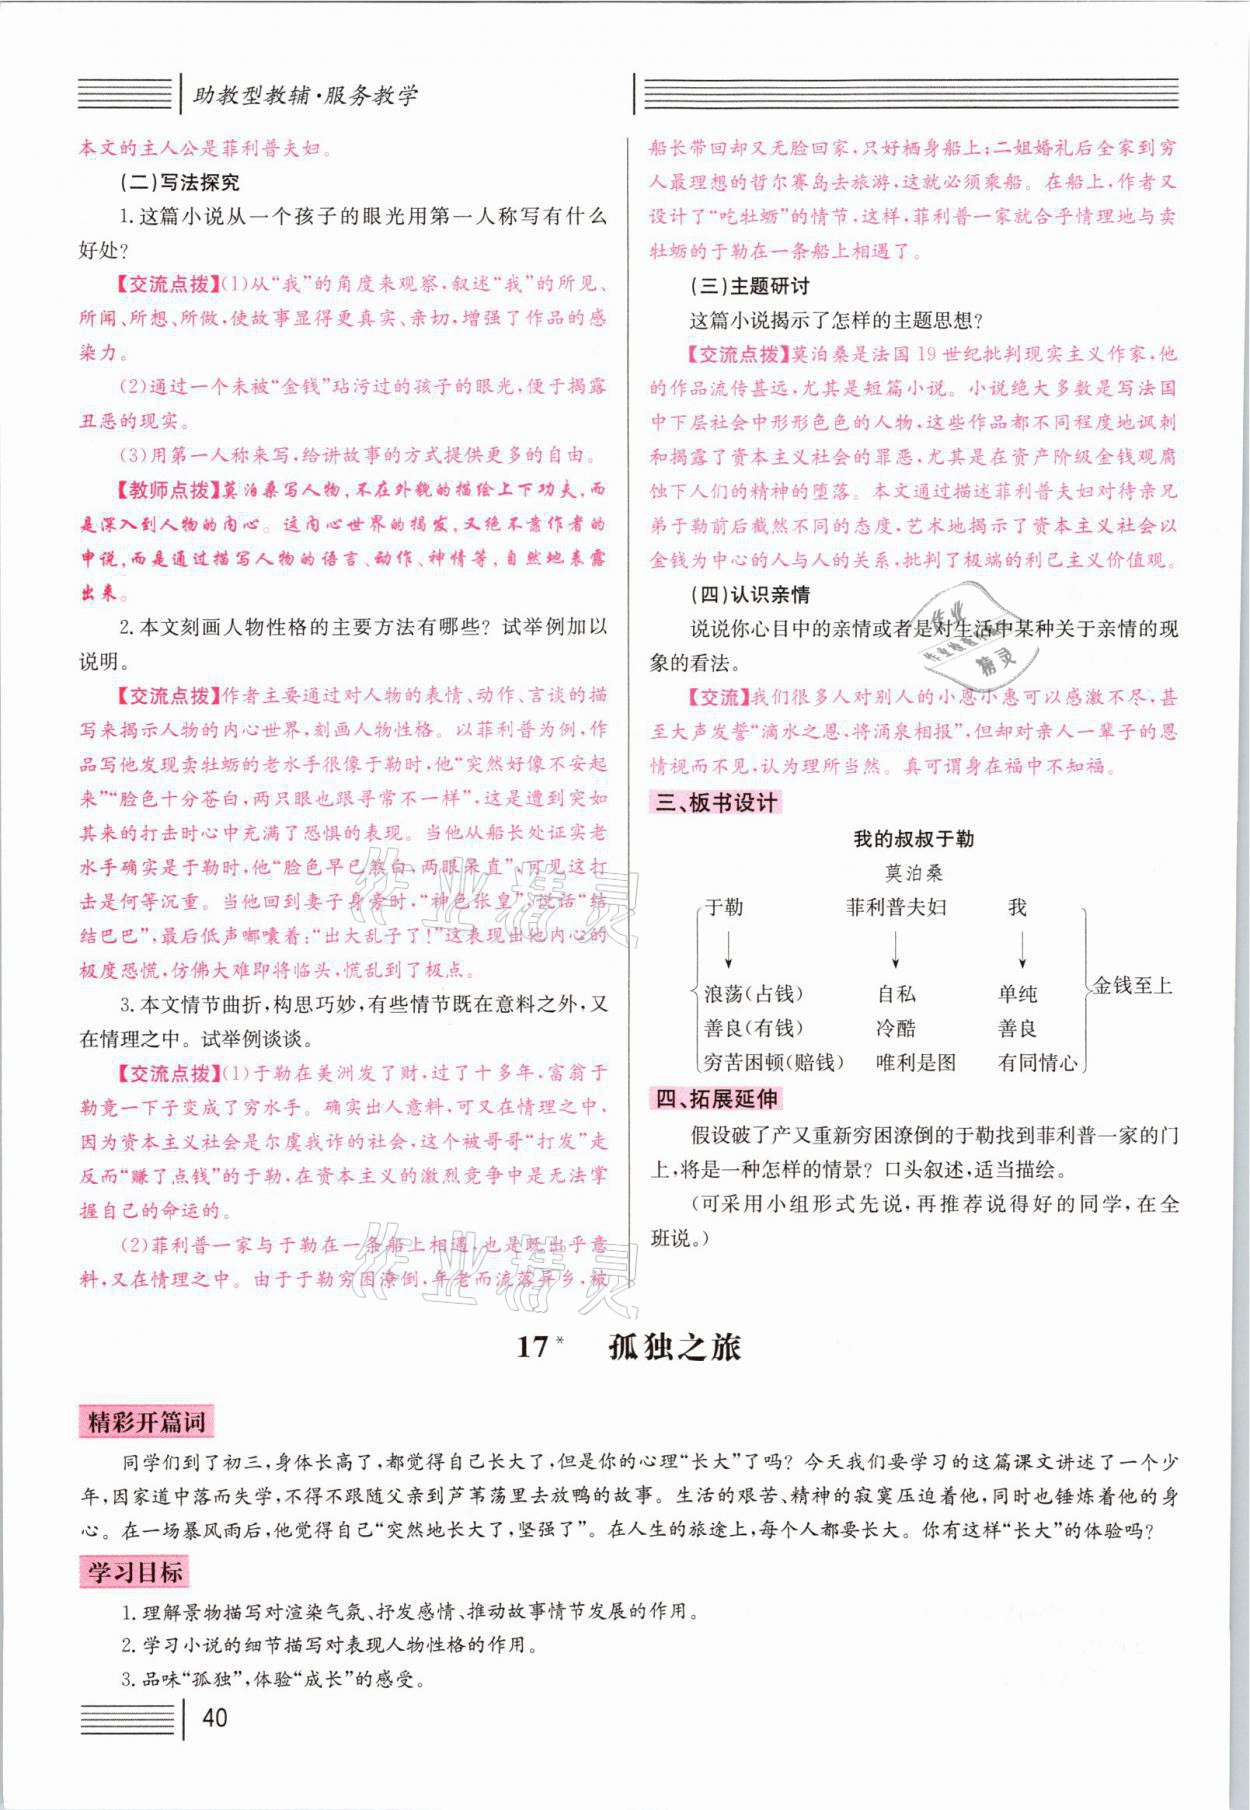 助教型教辅·服务教学
本文的主人公是菲利普夫妇。
(二)写法探究
1.这篇小说从一个孩子的眼光用第一人称写有什么
好处?
【交流点拨】(1)从“我”的角度来观察,叙述“我”的所见、
所闻、所想、所做,使故事显得更真实、亲切,增强了作品的感
染力。
(2)通过一个未被“金钱”玷污过的孩子的眼光,便于揭露
丑恶的现实。
(3)用第一人称来写,给讲故事的方式提供更多的自由。
【教师点拨】莫泊桑写人物,不在外貌的描绘上下功夫,而
是深入到人物的内心。这内心世界的揭发,又绝不靠作者的
申说,而是通过描写人物的语言、动作、神情等,自然地表露
出来。
2.本文刻画人物性格的主要方法有哪些?试举例加以
说明。
【交流点拨】作者主要通过对人物的表情、动作、言谈的描
写来揭示人物的内心世界,刻画人物性格。以菲利普为例,作
品写他发现卖牡蛎的老水手很像于勒时,他“突然好像不安起
来”“脸色十分苍白,两只眼也跟寻常不一样”,这是遭到突如
其来的打击时心中充满了恐惧的表现。当他从船长处证实老
水手确实是于勒时,他“脸色早已煞白,两眼呆直”,可见这打
击是何等沉重。当他回到妻子身旁时,“神色张皇”,说话“结
结巴巴”,最后低声嘟囔着:“出大乱子了!”这表现出他内心的
极度恐慌,仿佛大难即将临头,慌乱到了极点。
3.本文情节曲折,构思巧妙,有些情节既在意料之外,又
在情理之中。试举例谈谈。
【交流点拨】(1)于勒在美洲发了财,过了十多年,富翁于
勒竟一下子变成了穷水手。确实出人意料,可又在情理之中,
因为资本主义社会是尔虞我诈的社会,这个被哥哥“打发”走
反而“赚了点钱”的于勒,在资本主义的激烈竞争中是无法掌
握自己的命运的。
(2)菲利普一家与于勒在一条船上相遇,也是既出乎意
料,又在情理之中。由于于勒穷困潦倒,年老而流落异乡,被
船长带回却又无脸回家,只好栖身船上;二姐婚礼后全家到穷
人最理想的哲尔赛岛去旅游,这就必须乘船。在船上,作者又
设计了“吃牡蛎”的情节,这样,菲利普一家就合乎情理地与卖
牡蛎的于勒在一条船上相遇了。
(三)主题研讨
这篇小说揭示了怎样的主题思想?
【交流点拨】莫泊桑是法国19世纪批判现实主义作家,他
的作品流传甚远,尤其是短篇小说。小说绝大多数是写法国
中下层社会中形形色色的人物,这些作品都不同程度地讽刺
和揭露了资本主义社会的罪恶,尤其是在资产阶级金钱观腐
蚀下人们的精神的堕落。本文通过描述菲利普夫妇对待亲兄
弟于勒前后截然不同的态度,艺术地揭示了资本主义社会以
金钱为中心的人与人的关系,批判了极端的利己主义价值观。
(四)认识亲情
说说你心目中的亲情或者是对生活中某种关于亲情的现
象的看法。
【交流】我们很多人对别人的小恩小惠可以感激不尽,甚
至大声发誓“滴水之恩,将涌泉相报”,但却对亲人一辈子的恩
情视而不见,认为理所当然。真可谓身在福中不知福。
三、板书设计
我的叔叔于勒
莫泊桑
于勒 菲利普夫妇 我
浪荡(占钱) 自私 单纯
金钱至上
善良(有钱) 冷酷 善良
穷苦困顿(赔钱) 唯利是图 有同情心
四、拓展延伸
假设破了产又重新穷困潦倒的于勒找到菲利普一家的门
上,将是一种怎样的情景?口头叙述,适当描绘。
(可采用小组形式先说,再推荐说得好的同学,在全
班说。)
17* 孤独之旅
精彩开篇词
同学们到了初三,身体长高了,都觉得自己长大了,但是你的心理“长大”了吗?今天我们要学习的这篇课文讲述了一个少
年,因家道中落而失学,不得不跟随父亲到芦苇荡里去放鸭的故事。生活的艰苦、精神的寂寞压迫着他,同时也锤炼着他的身
心。在一场暴风雨后,他觉得自己“突然地长大了,坚强了”。在人生的旅途上,每个人都要长大。你有这样“长大”的体验吗?
学习目标
1.理解景物描写对渲染气氛、抒发感情、推动故事情节发展的作用。
2.学习小说的细节描写对表现人物性格的作用。
3.品味“孤独”,体验“成长”的感受。
40
作业精灵
作业精灵